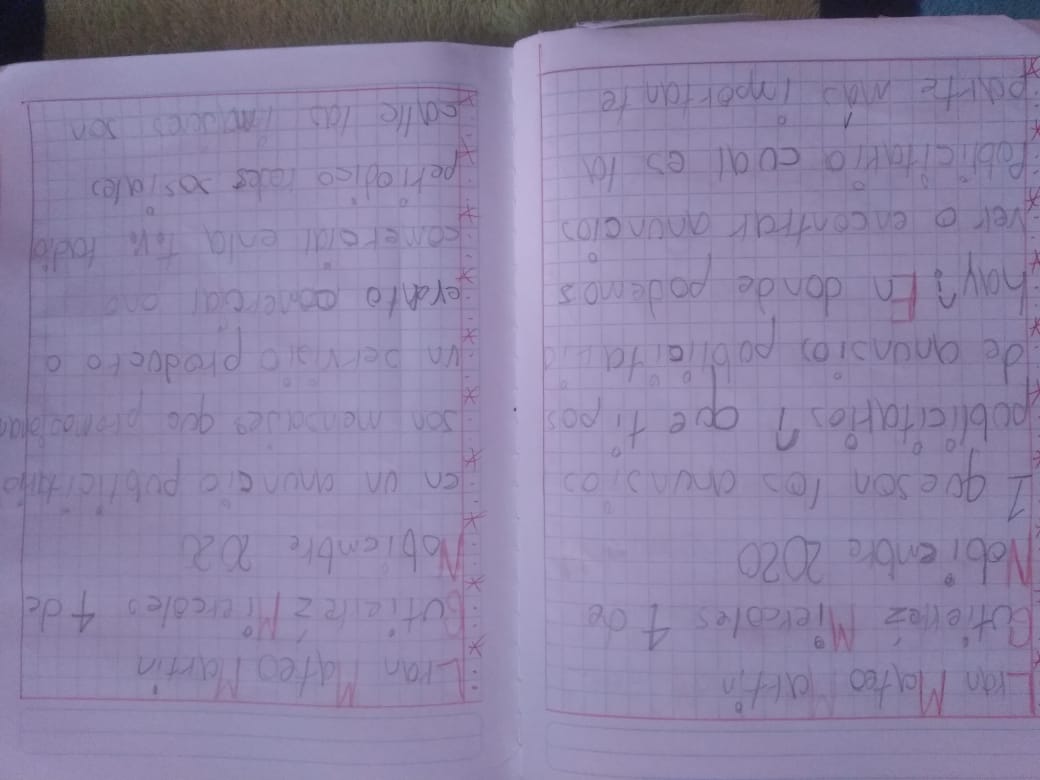 Lian Mateo Martin
Gutierrez Miercoles 4 de
Nobiembre 2020
1 que son los anunsios
poblicitarios? que tipos
de anunsios poblicita
hay? En donde podemos
ver o encontrar anuncios
Poblicitario cual es la
parte más importante
Lian Mateo Martin
Gutierrez Miercoles 4 de
Nobiembre 2020
en un anuncio publicitario
son mensajes que promocionan
un servisio producto o
comercial
comersial en la t.v. radio
periodico redes sosiales
calle las imajenes son